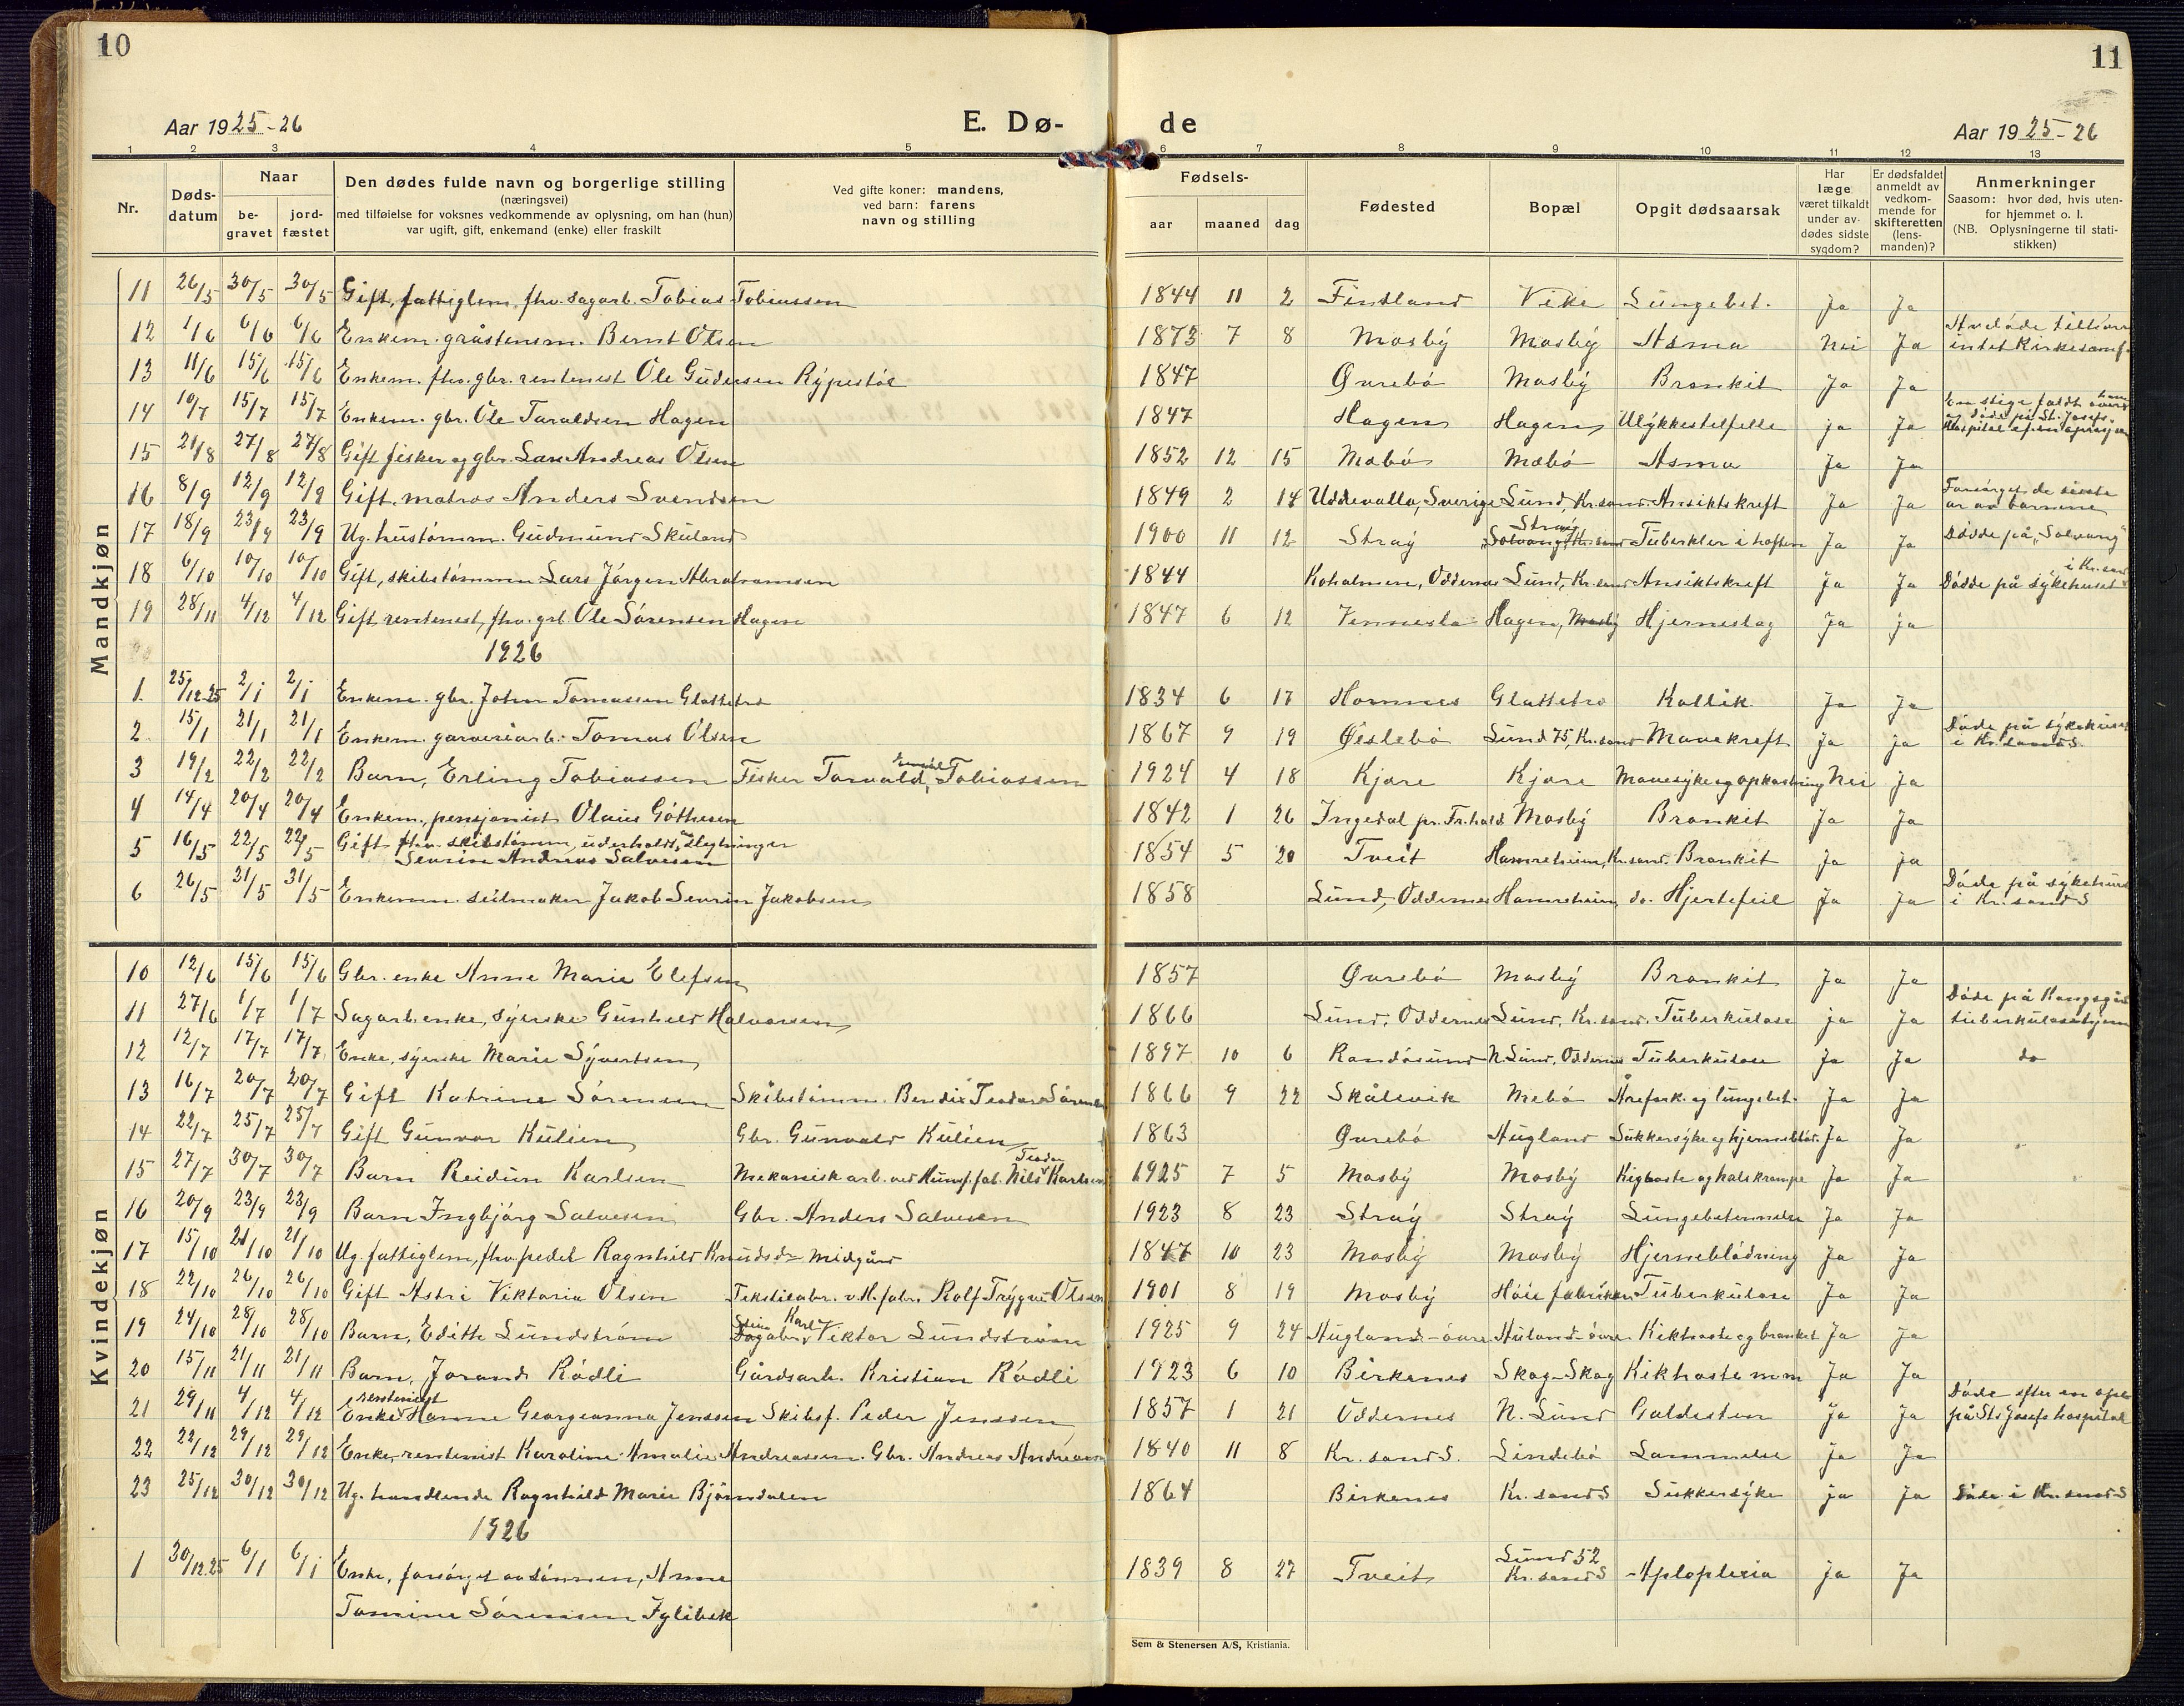 10
11
Aar 1925-26
E. Dø-
de
Aar 1925-26
1 2 3 4 5 6 7 8 9 10 11 12 13
Nr.
Døds-
datum
Naar
be-
gravet
jord-
fæstet
Den dødes fulde navn og borgerlige stilling
(næringsvei)
med tilføielse for voksnes vedkommende av oplysning, om han (hun)
var ugift, gift, enkemand (enke) eller fraskilt
Ved gifte koner: mandens,
ved barn: farens
navn og stilling
Fødsels-
aar maaned dag
Fødested
Bopæl
Opgit dødsaarsak
Har
læge
været tilkaldt
under av-
dødes sidste
sygdom?
Er dødsfaldet
anmeldt av
vedkom-
mende for
skifteretten
(lens-
manden)?
Anmerkninger
Saasom: hvor død, hvis uten-
for hjemmet o. l.
(NB. Oplysningerne til stati-
stikken)
Mandkjøn
11 26/5 30/5 30/5 Gift, fattiglem, fhv. sagarb. Tobias Tobiassen 1844 11 2 Findland Vike Lungebet. Ja Ja
12 1/6 6/6 6/6 Enkem. gråstensm. Bernt Olsen 1873 7 8 Mosby Mosby Asma Nei Ja Avdøde tilhører intet kirkesamf.
13 11/6 15/6 15/6 Enkem. fhv. gbr. rentenist Ole Gudmsen Rypestøl 1847 Øvrebø Mosby Bronkit Ja Ja
14 10/7 15/7 15/7 Enkem. gbr. Ole Taraldsen Hagen 1847 Hagen Hagen Ulykkestilfelle ja Ja En stige faldt over ham og døde på St. Josefs Hospital ef. en oprasjon
15 21/8 27/8 27/8 Gift fisker og gbr. Lars Andreas Olsen 1852 12 15 Mæbø Mæbø Asma Ja Ja
16 8/9 12/9 12/9 Gift, matros Anders Svendsen 1849 2 14 Uddevalla, Sverige Lund, Kr.sand Ansiktskreft Ja Ja Forsørget de siste år av barnene
17 18/9 23/9 23/9 Ug. hustømm. Gudmund Skuland 1900 11 12 Stray Stray Tuberkler i hoften Ja Ja Dødde på "Solvang"
18 6/10 10/10 10/10 Gift, skibstømmm Lars Jørgen Abrahamsen 1844 Koholmen, Oddernes Lund, Kr.sand Ansiktskreft Ja Ja Dødde på sykehuset i Kr.sand
19 28/11 4/12 4/12 Gift, rentenist, fhv. gbr. Ole Sørensen Hagen 1847 6 12 Vennesla Hagen, Mosby Hjerneslag Ja ja
1926
1. 25/12.25 2/1 2/1 Enkem. gbr. John Tomassen Glattetre 1834 6 17 Homnes Glattetre Kollik Ja Ja
2. 15/1 21/1 21/1 Enkem. garveriarb. Tomas Olsen 1867 9 19 Øislebø Lund 75, Kr.sand Mavekreft Ja ja Døde på sykehuset i Kr.sand S.
3 19/2 22/2 22/2 Barn, Erling Tobiassen Fisker Torvald Emil Tobiassen 1924 4 18 Kjøre Kjøre Mavesyke og opkastning Nei Ja
4 14/4 20/4 20/4 Enkem., pensjonist Olaus Gøthesen 1842 1 26 Ingedal pr. Fr.hald Mosby Bronkit Ja Ja
5 16/5 22/5 22/5 Gift fhv. skibstømm, underholdt av slegtninger Severin Andreas Salvesen 1854 5 20 Tveit Hamreheien, Kr.sand. Bronkit ja ja
6 26/5 31/5 31/5 Enkemm. seilmaker Jakob Severin Jakobsen 1858 Lund, Oddernes Hamreheien, do. Hjertefeil Ja Ja Døde på sykehuset i Kr.sand S
Kvindekjøn
10 12/6 15/6 15/6 Gbr. enke Anne Marie Elefsen 1857 Øvrebø Mosby Bronkit Ja Ja
11 27/6 1/7 1/7 Sagarb.enke, syerske Gunhild Halvorsen 1866 Lund, Oddernes Lund, Kr.sand. Tuberkulose ja Ja Døde på Kongsgård tuberkulosehjem
12 12/7 17/7 17/7 Enke, syerske Marie Syvertsen 1897 10 6 Randøsund N. Lund, Oddernes Tuberkulose Ja Ja do
13 16/7 20/7 20/7 Gift Katrine Sørensen Skibstømm. Bendix Teodor Sørensen 1866 9 22 Skålevik Mebø Årefork. og lungebet. Ja Ja
14 22/7 25/7 25/7 Gift Gunvor Kulien Gbr. Gunvald Kulien 1863 Øvrebø Augland Sukkersyke og hjernebløt. Ja Ja
15 27/7 30/7 30/7 Barn Reidun Karlsen Mekanisk arb. ved Hunsf. fab. Nils Teodor Karlsen 1925 7 5 Mosby Mosby Kighoste og halskrampe Ja Ja
16 20/9 23/9 23/9 Barn Ingbjørg Salvesen Gbr. Anders Salvesen 1923 8 23 Stray Stray Lungebetennelse Ja Ja
17 15/10 21/10 21/10 Ug. fattiglem, fhv. pedel Ragnhild Knudsdr Midgård 1847 10 23 Mosby Mosby Hjerneblødning Ja Ja
18 22/10 26/10 26/10 Gift Astri Viktoria Olsen Tekstilabr. v. H. fabr. Rolf Trygve Olsen 1901 8 19 Mosby Høie fabriker Tuberkulose Ja Ja
19 24/10 28/10 28/10 Barn, Edith Lundstrøm Karl Viktor Lundstrøm 1925 9 24 Augland-øvre Auland-øvre Kikhoste og bronket Ja Ja
20 15/11 21/11 21/11 Barn, Jorand Rødli Gårdsarb. Kristian Rødli 1923 6 10 Birkenes Skog-Skog Kikhoste m m Ja Ja
21 29/11 4/12 4/12 Enke rentenist Hanne Georgeanna Jenssen Skibsf. Peder Jenssen 1857 1 21 Oddernes N. Lund Galdesten Ja Ja Døde efter en ope på Sts Josefs hospital
22 22/12 29/12 29/12 Enke, rentenist Karoline Amalie Andreassen. Gbr. Andreas Andreassen 1840 11 8 Kr.sand S. Lindebø Lammelse ja Ja
23 25/12 30/12 30/12 Ug. handlende Ragnhild Marie Bjørndalen 1864 Birkenes Kr.sand S Sukkersyke ja Ja Døde i Kr.sand S
1926
1 30/12.25 6/1 6/1 Enke, forsørget av sønnen, Anne 1839 8 27 Tveit Lund 52 Kr.sand S Aploplexia ja Ja
Tomine Sørensen Fylibek
Sem & Stenersen A/S, Kristiania.